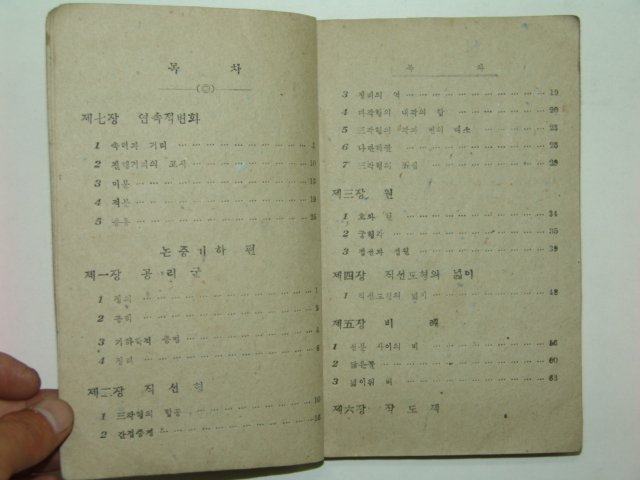 목 차
제七장 연속적변화
1 속력과 거리 1
2 10
3 미분 13
4 적분 19
5 26
논중기하 편
제一장 공리군
1 정의 1
2 공리
3 기하학적 증명 4
4 정리 6
제二장 직선형 10
1 三각형의 합공
2 간접증명
목 차
3 정리의 역 19
4 다각형의 내각의 합 20
5 三각형의 각과 변의 대소 23
6 25
7 三각형의 五심 29
제三장 원
1 호와 현 34
2 35
3 39
제四장 직선도형의 넓이
1 직선도형의 넓이 48
제五장 비 례
1 선분 사이의 비 56
2 닮은꼴 60
3 넓이위 비 63
제六장 작도제